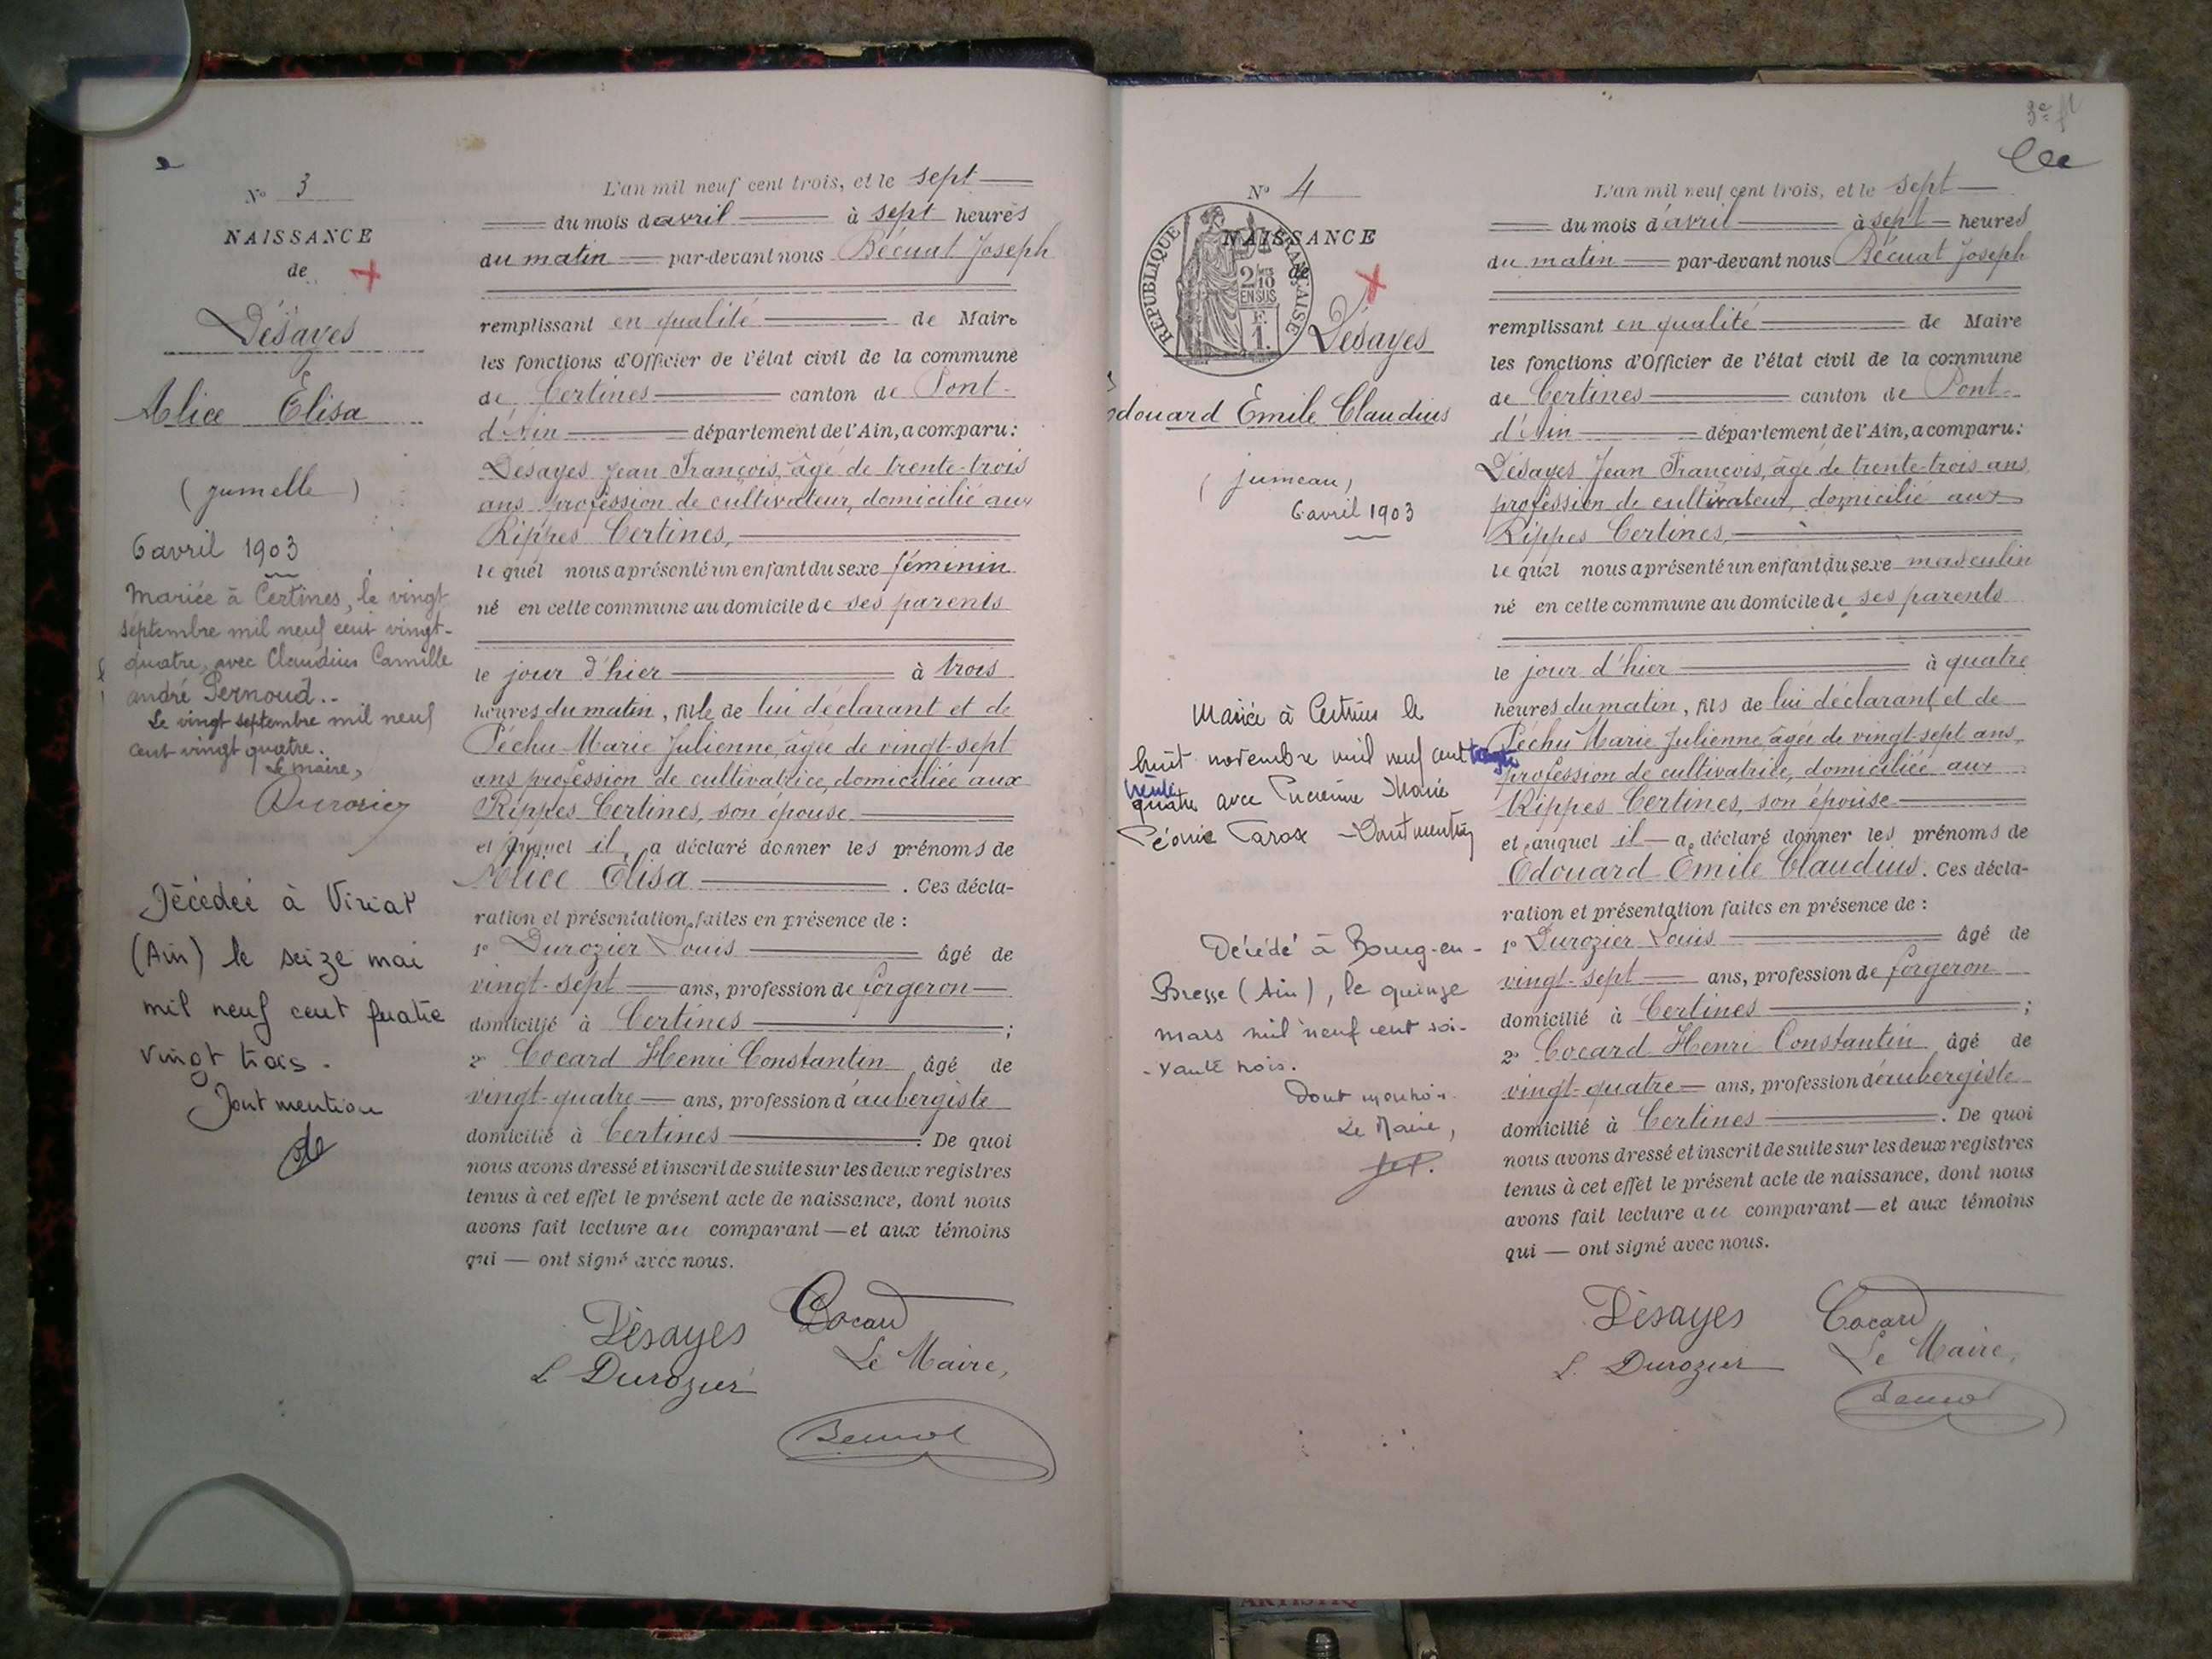 2
N° 3
NAISSANCE
de
Désayes
Alice Élisa
(jumelle)
6 avril 1903
Mariée à Certines, le vingt
septembre mil neuf cent vingt-
quatre, avec Claudius Camille
andré Pernoud.-
Le vingt septembre mil neuf
cent vingt quatre.
Le maire,
Durozier
Décédée à Viriat
(Ain) le seize mai
mil neuf cent quatre
vingt trois.
Dont mention
L'an mil neuf cent trois, et le sept
du mois d'avril à sept heures
du matin par-devant nous Bécuat Joseph
remplissant en qualité de Maire
les fonctions d'Officier de l'état civil de la commune
de Certines canton de Pont-
d'Ain département de l'Ain, a comparu:
Désayes Jean François, âgé de trente-trois
ans profession de cultivateur, domicilié aux
Rippes Certines,
lequel nous a présenté un enfant du sexe féminin
né en cette commune au domicile de ses parents
le jour d'hier à trois
heures du matin, fille de lui déclarant et de
Péchu Marie Julienne, âgée de vingt-sept
ans profession de cultivatrice, domiciliée aux
Rippes Certines, son épouse
et auquel il a déclaré donner les prénoms de
Alice Élisa. Ces décla-
ration et présentation faites en présence de :
1° Durozier Louis âgé de
vingt-sept ans, profession de forgeron
domicilié à Certines ;
2° Cocard Henri Constantin âgé de
vingt-quatre ans, profession d'aubergiste
domicilié à Certines. De quoi
nous avons dressé et inscrit de suite sur les deux registres
tenus à cet effet le présent acte de naissance, dont nous
avons fait lecture au comparant — et aux témoins
qui — ont signé avec nous.
Désayes Cocard
L Durozier Le Maire,
3e fl
N° 4
NAISSANCE
de
REPUBLIQUE FRANÇAISE
2/10
EN SUS
F.
1.
Désayes
Édouard Émile Claudius
(jumeau)
6 avril 1903
Mariée à Certines le
huit novembre mil neuf cent
trente
quatre avec Lucienne Marie
Léonie Carox - Dont mention
Décédé à Bourg-en-
Bresse (Ain), le quinze
mars mil neuf cent soi-
-xante trois.
Dont mention
Le Maire,
L'an mil neuf cent trois, et le sept
du mois d'avril à sept heures
du matin par-devant nous Bécuat Joseph
remplissant en qualité de Maire
les fonctions d'Officier de l'état civil de la commune
de Certines canton de Pont-
d'Ain département de l'Ain, a comparu:
Désayes Jean François, âgé de trente-trois ans
profession de cultivateur, domicilié aux
Rippes Certines,
lequel nous a présenté un enfant du sexe masculin
né en cette commune au domicile de ses parents
le jour d'hier à quatre
heures du matin, fils de lui déclarant et de
Péchu Marie Julienne, âgée de vingt-sept ans,
profession de cultivatrice, domiciliée aux
Rippes Certines, son épouse
et auquel il — a déclaré donner les prénoms de
Édouard Émile Claudius. Ces décla-
ration et présentation faites en présence de :
1° Durozier Louis âgé de
vingt-sept ans, profession de forgeron
domicilié à Certines ;
2° Cocard Henri Constantin âgé de
vingt-quatre ans, profession d'aubergiste
domicilié à Certines. De quoi
nous avons dressé et inscrit de suite sur les deux registres
tenus à cet effet le présent acte de naissance, dont nous
avons fait lecture au comparant — et aux témoins
qui — ont signé avec nous.
Désayes Cocard
L. Durozier Le Maire,